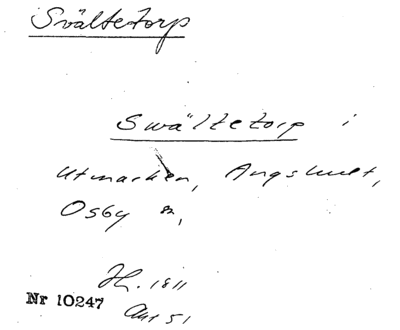 Svältetorp
Swältetorp i
Utmarken, Angshult,
Osby sn,
Hl. 1811
Nr 10247
Akt 51